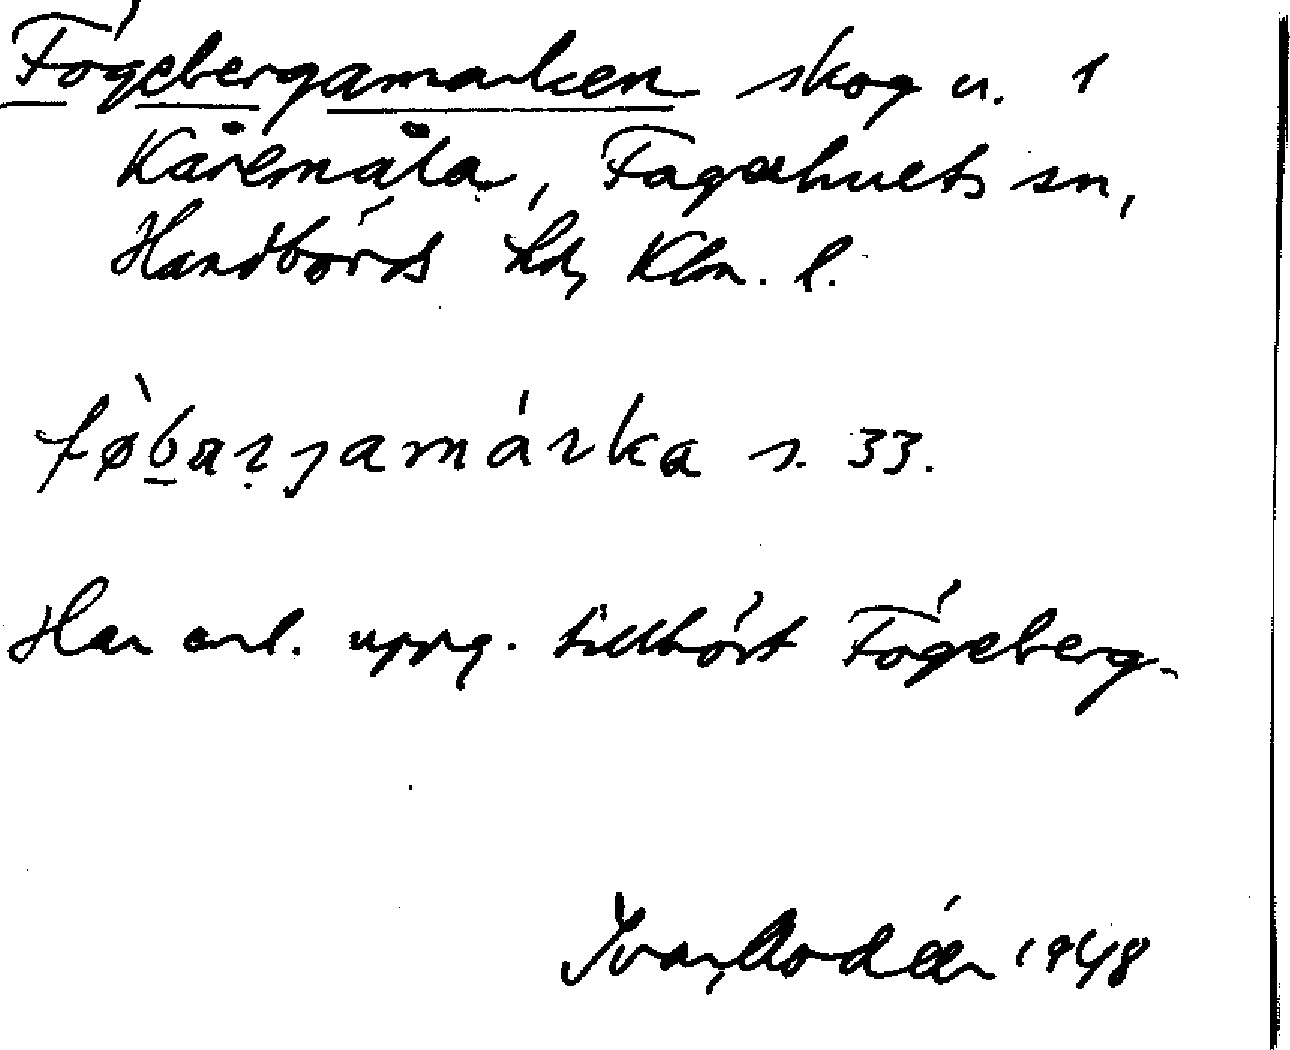 Fögebergamarken skog u. 1
Kåremåla, Fagerhults sn,
Handbörds hd, Klm. l.
fø̀bærjamárka s. 33.
Har enl. uppg. tillhört Fögeberg.
Ivar Modéer 1948